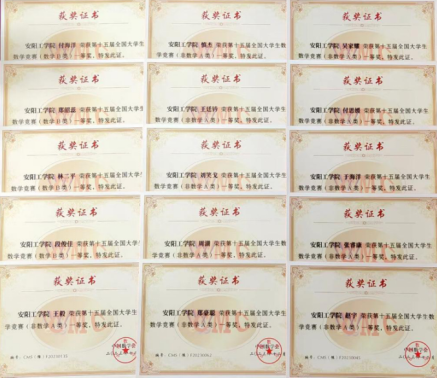 获奖证书
安阳工学院 付海洋 荣获第十五届全国大学生
数学竞赛(非数学B类)一等奖，特发此证。
获奖证书
安阳工学院 荣获第十五届全国大学生数
学竞赛(非数学A类)一等奖，特发此证。
获奖证书
安阳工学院 吴家耀 荣获第十五届全国大学生
数学竞赛(非数学B类)一等奖，特发此证。
获奖证书
安阳工学院 荣获第十五届全国大学生
数学竞赛(非数学B类)一等奖，特发此证。
获奖证书
安阳工学院 王廷钤 荣获第十五届全国大学生
数学竞赛(非数学A类)一等奖，特发此证。
获奖证书
安阳工学院 付恩雅 荣获第十五届全国大学生
数学竞赛(非数学B类)一等奖，特发此证。
获奖证书
安阳工学院 林二平 荣获第十五届全国大学生
数学竞赛(非数学B类)一等奖，特发此证。
获奖证书
安阳工学院 荣获第十五届全国大学生
数学竞赛(非数学A类)一等奖，特发此证。
获奖证书
安阳工学院 于海洋 荣获第十五届全国大学生
数学竞赛(非数学A类)一等奖，特发此证。
获奖证书
安阳工学院 段俊佳 荣获第十五届全国大学生
数学竞赛(非数学A类)一等奖，特发此证。
获奖证书
安阳工学院 周潇 荣获第十五届全国大学生数
学竞赛(非数学A类)一等奖，特发此证。
获奖证书
安阳工学院 张睿康 荣获第十五届全国大学生
数学竞赛(非数学A类)一等奖，特发此证。
获奖证书
安阳工学院 王毅 荣获第十五届全国大学生数
学竞赛(非数学A类)一等奖，特发此证。
中国数学会
获奖证书
安阳工学院 邢豪聪 荣获第十五届全国大学生
数学竞赛(非数学A类)一等奖，特发此证。
中国数学会
获奖证书
安阳工学院 赵宇 荣获第十五届全国大学生数
学竞赛(非数学A类)一等奖，特发此证。
中国数学会